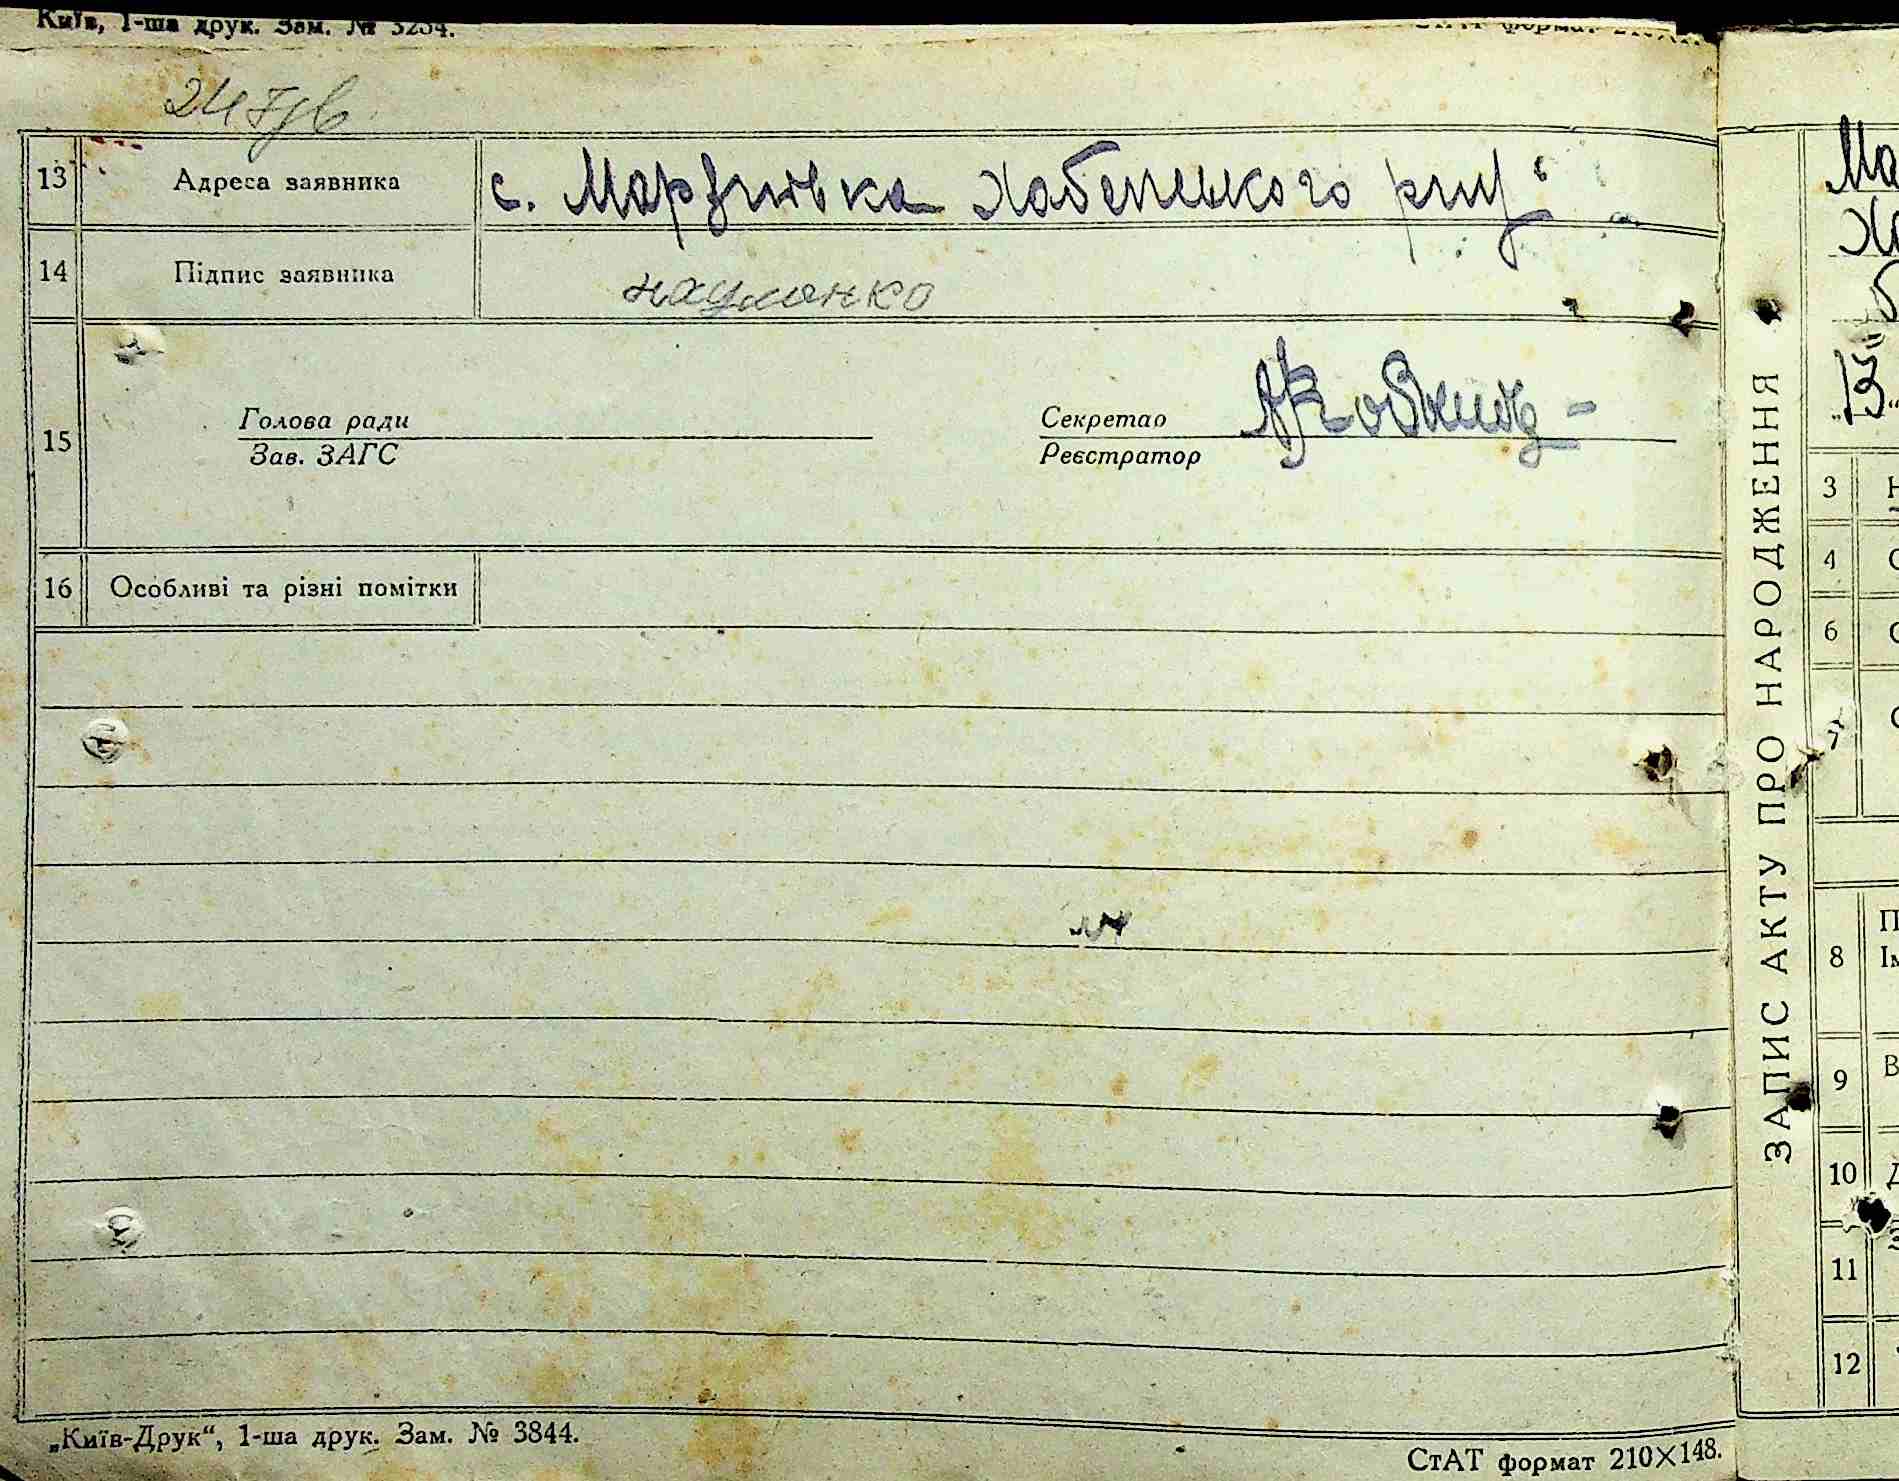 Київ, 1-ша друк. Зам. № 3254.
13 Адреса заявника с. Марʼянівка Хабенського р-ну
14 Підпис заявника науменко
Голова ради Секретар
15
Зав. ЗАГС Реєстратор
16 Особливі та різні помітки
„Київ-Друк“, 1-ша друк. Зам. № 3844.
СтАТ формат 210×148.
ЗАПИС АКТУ ПРО НАРОДЖЕННЯ
Ма
Ха
„13“
3
4
6
7
8
9
10
11
12